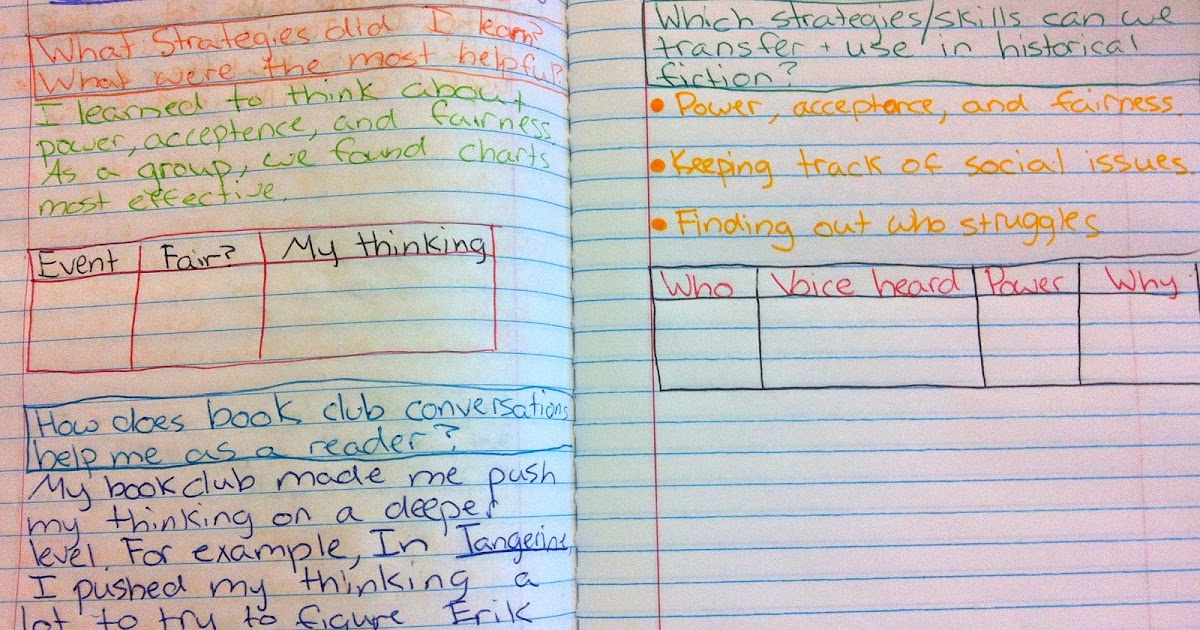 What Strategies did I learn?
What were the most helpful?
I learned to think about
power, acceptence, and fairness.
As a group, we found charts
most effective.
Event Fair? My thinking
How does book club conversations
help me as a reader?
My book club made me push
my thinking on a deeper
level. For example, In Tangerine,
I pushed my thinking a
lot to try to figure Erik
Which strategies/skills can we
transfer + use in historical
fiction?
• Power, acceptence, and fairness.
• Keeping track of social issues.
• Finding out who struggles
Who Voice heard Power Why